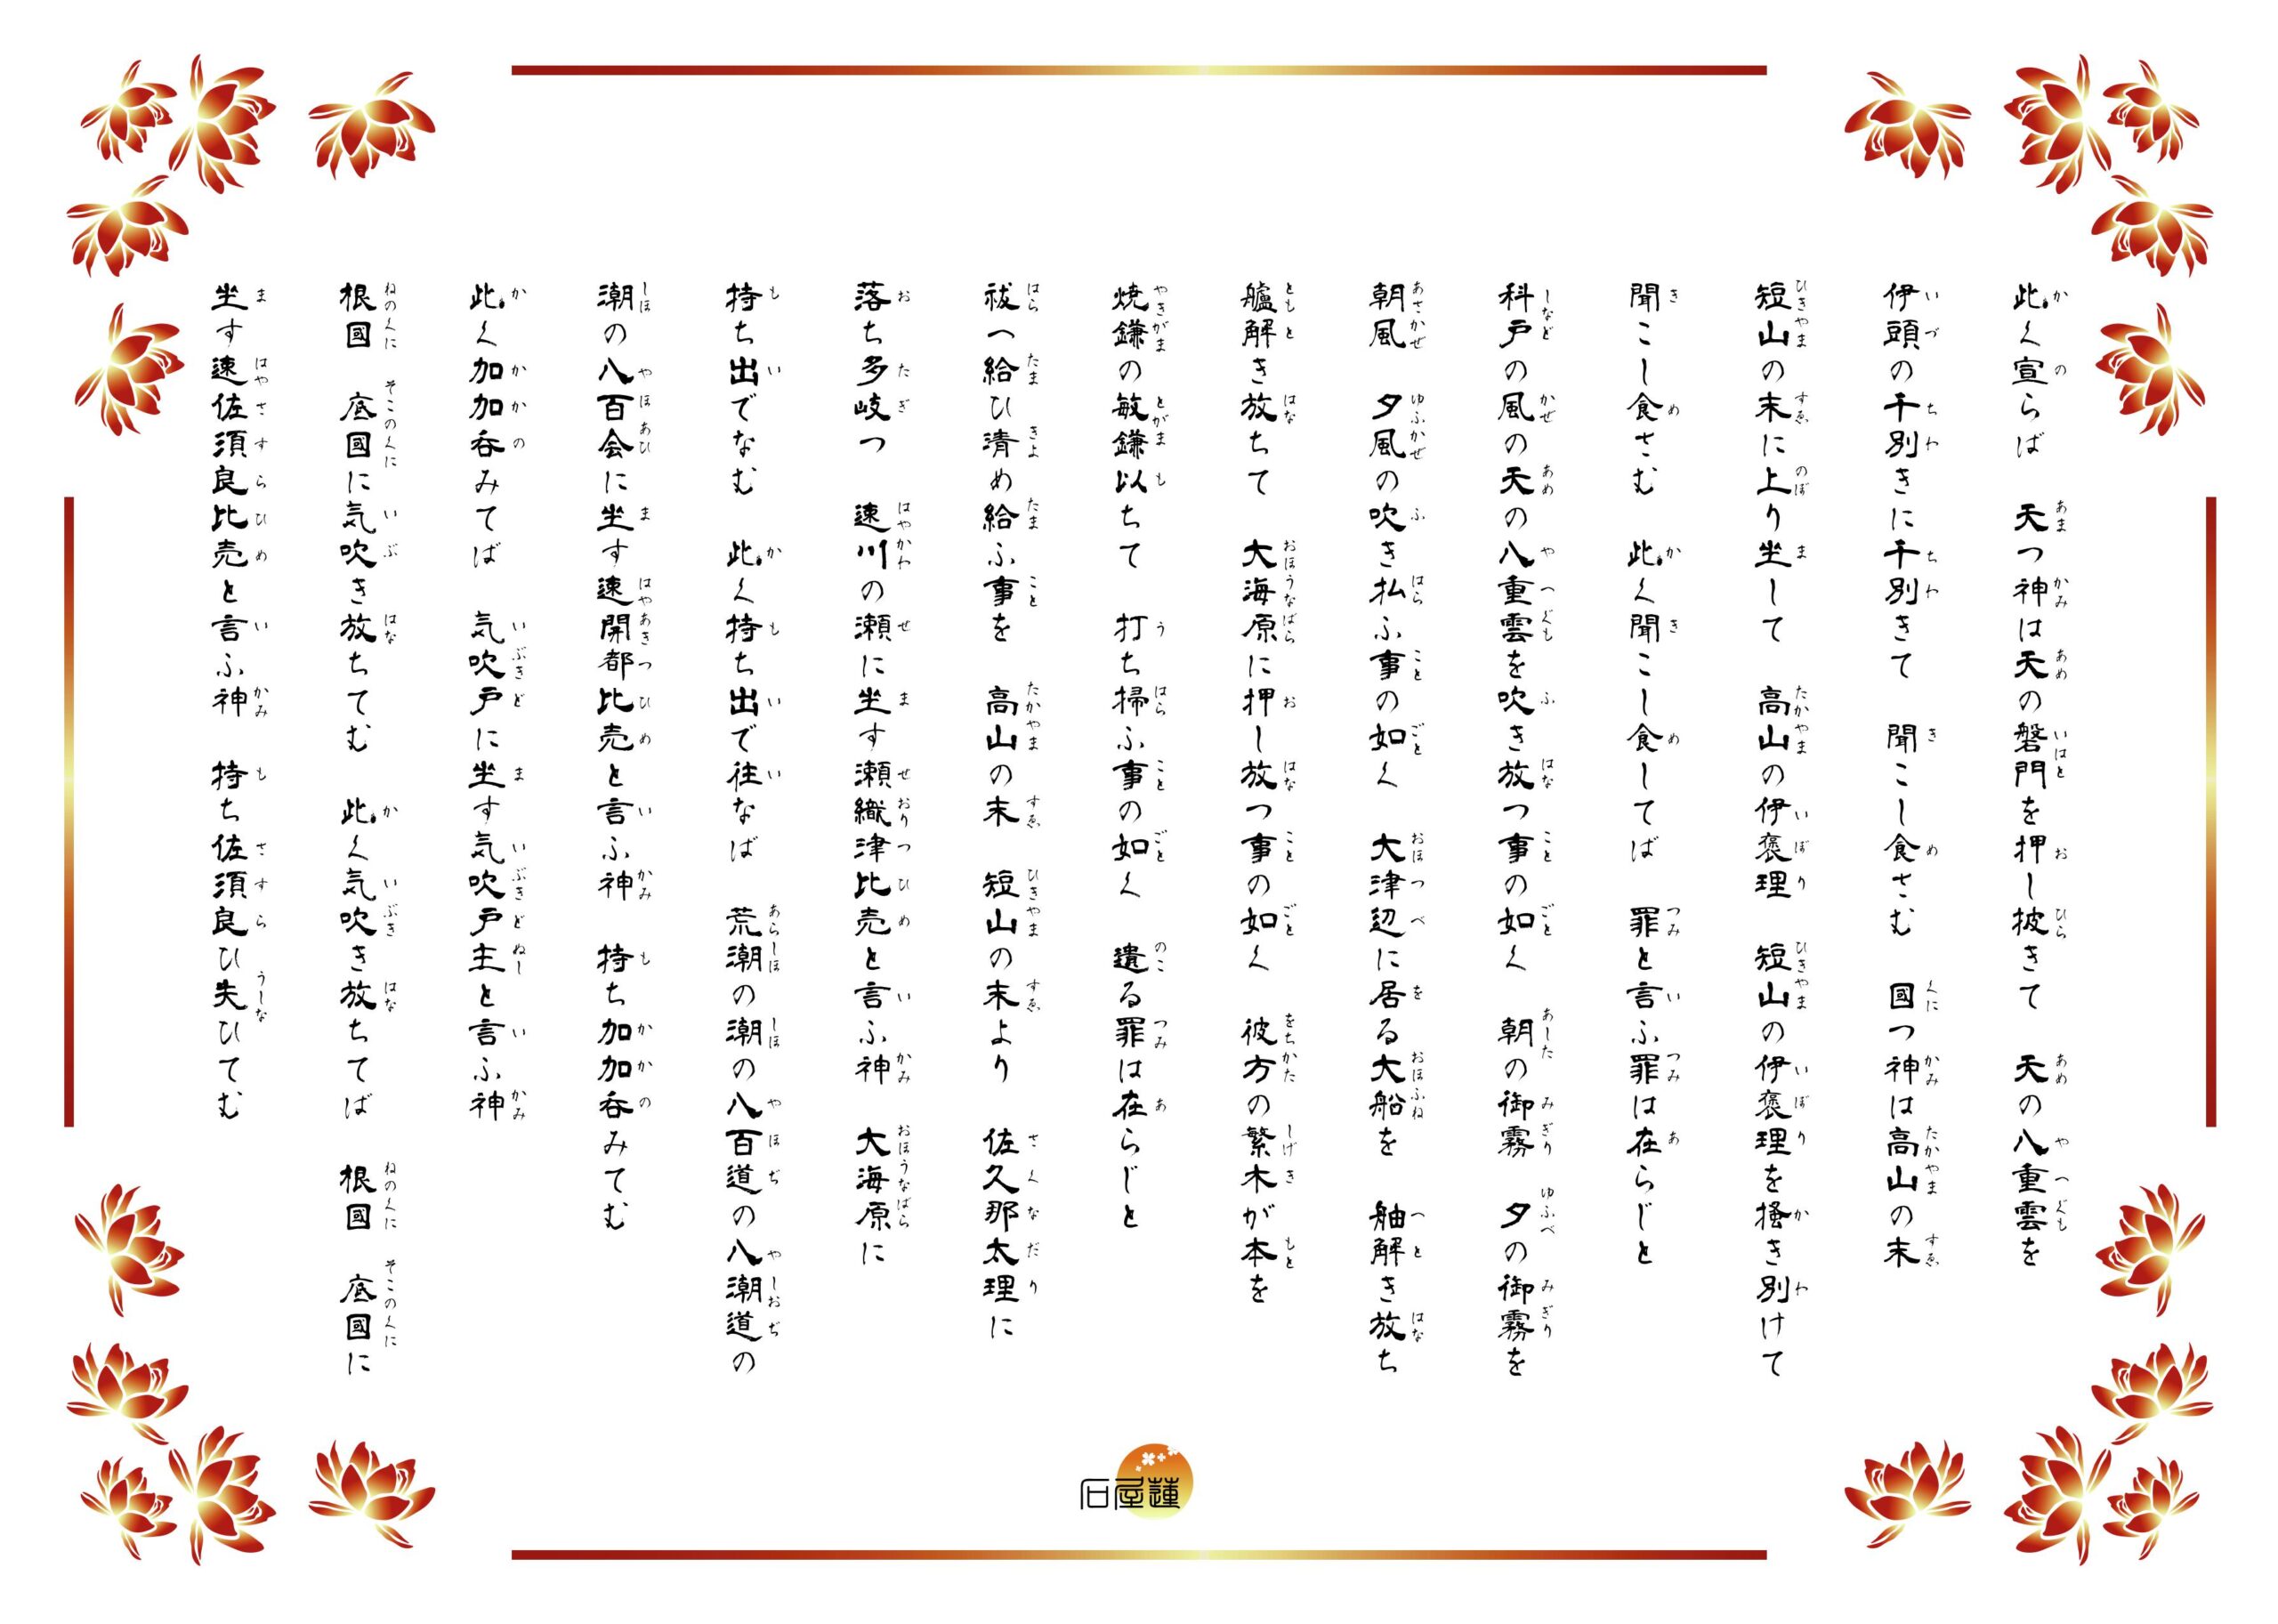 此く宣らば　天つ神は天の磐門を押し披きて　天の八重雲を
伊頭の千別きに千別きて　聞こし食さむ　國つ神は高山の末
短山の末に上り坐して　高山の伊褒理　短山の伊褒理を掻き別けて
聞こし食さむ　此く聞こし食してば　罪と言ふ罪は在らじと
科戸の風の天の八重雲を吹き放つ事の如く　朝の御霧　夕の御霧を
朝風　夕風の吹き払ふ事の如く　大津辺に居る大船を　舳解き放ち
艫解き放ちて　大海原に押し放つ事の如く　彼方の繁木が本を
焼鎌の敏鎌以ちて　打ち掃ふ事の如く　遺る罪は在らじと
祓へ給ひ清め給ふ事を　高山の末　短山の末より　佐久那太理に
落ち多岐つ　速川の瀬に坐す瀬織津比売と言ふ神　大海原に
持ち出でなむ　此く持ち出で往なば　荒潮の潮の八百道の八潮道の
潮の八百会に坐す速開都比売と言ふ神　持ち加加呑みてむ
此く加加呑みてば　気吹戸に坐す気吹戸主と言ふ神
根國　底國に気吹き放ちてむ　此く気吹き放ちてば　根國　底國に
坐す速佐須良比売と言ふ神　持ち佐須良ひ失ひてむ
石屋蓮